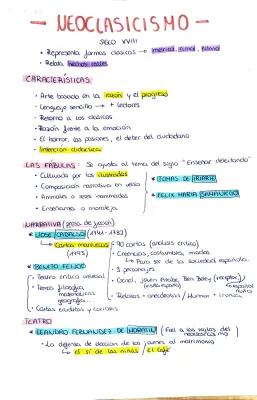 — NEOCLASICISMO —
SIGLO XVIII
• Representa formas clásicas → métrica, rima, ritmo
• Relata hechos reales
CARACTERÍSTICAS:
• Arte basado en la razón y el progreso
• Lenguaje sencillo → + lectores
• Retorno a los clásicos
• Razón frente a la emoción
• El honor, las pasiones, el deber del ciudadano
• Intención didáctica
LAS FÁBULAS: Se ajusta al tema del siglo "Enseñar deleitando"
• Cultivada por los ilustrados
• Composición narrativa en verso
• Animales o seres inanimados
• Enseñanza o moraleja
* TOMAS DE IRIARTE
* FELIX MARIA SAMANIEGO
NARRATIVA (prosa de ficción)
* JOSE CADALSO (1741-1782)
↳ Cartas marruecas (1793)
• 90 cartas (análisis crítico)
• Creencias, costumbres, modos
↳ Para ser de la sociedad española.
• 3 personajes
• Gazel, joven árabe, Ben Beley (receptor) y español Nuño
• Relatos + anécdotas / Humor + ironía
* BENITO FEIJOO
• Teatro crítico universal
• Temas filosofía, matemáticas geografía...
• Cartas eruditas y curiosas
TEATRO
* LEANDRO FERNANDEZ DE MORATIN (Fiel a las reglas del neoclasicismo)
• La defensa de elección de las jóvenes al matrimonio
↳ el sí de las niñas / El café